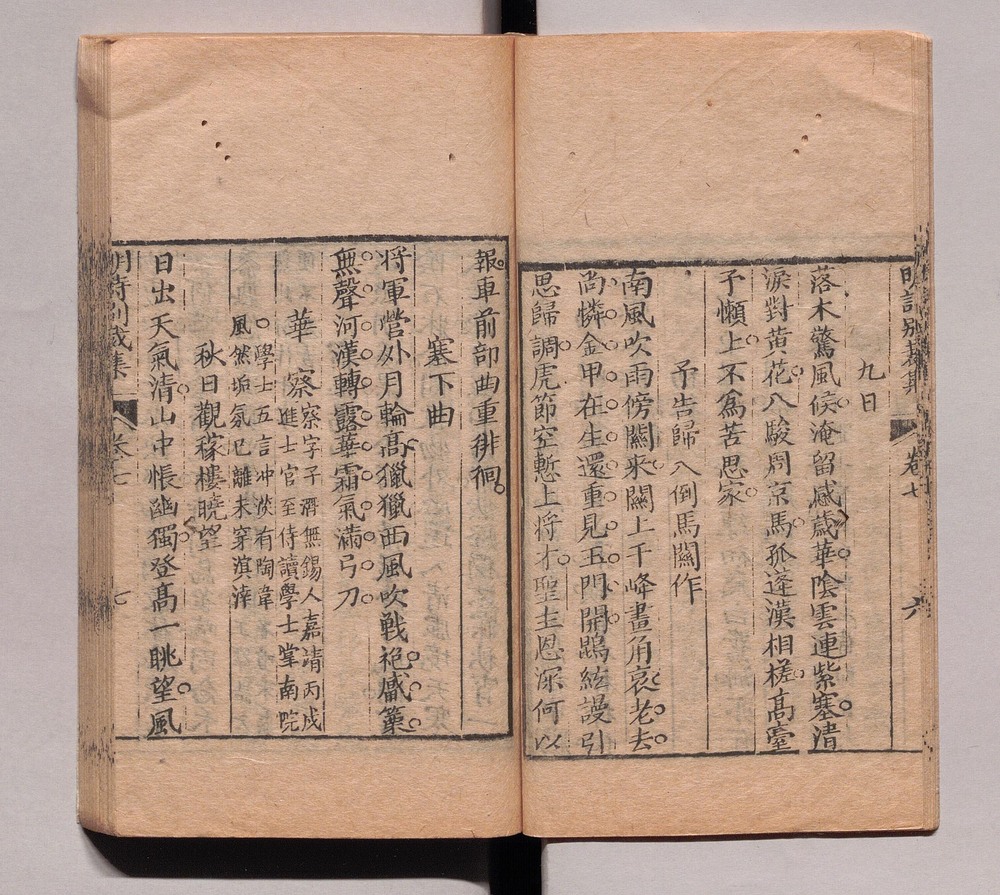 明詩別裁集 卷七 六
九日
落木驚風候淹留感歲華陰雲連紫塞清
淚對黃花八駿周京馬孤逢漢相槎高臺
予懶上不爲苦思家
予告歸入倒馬關作
南風吹雨傍關來關上千峰畫角哀老去
尚憐金甲在生還重見玉門開鵾絃謾引
思歸調虎節空慙上將才聖主恩深何以
報車前部曲重徘徊
塞下曲
將軍營外月輪高獵獵西風吹戰袍觱篥
無聲河漢轉露華霜氣滿弓刀
華察
察字子潛無錫人嘉靖丙戌
進士官至侍讀學士掌南院
學士五言冲淡有陶韋
風然垢氛已離未穿溟涬
秋日觀稼樓曉望
日出天氣清山中悵幽獨登高一眺望風
明詩別裁集 卷七 七